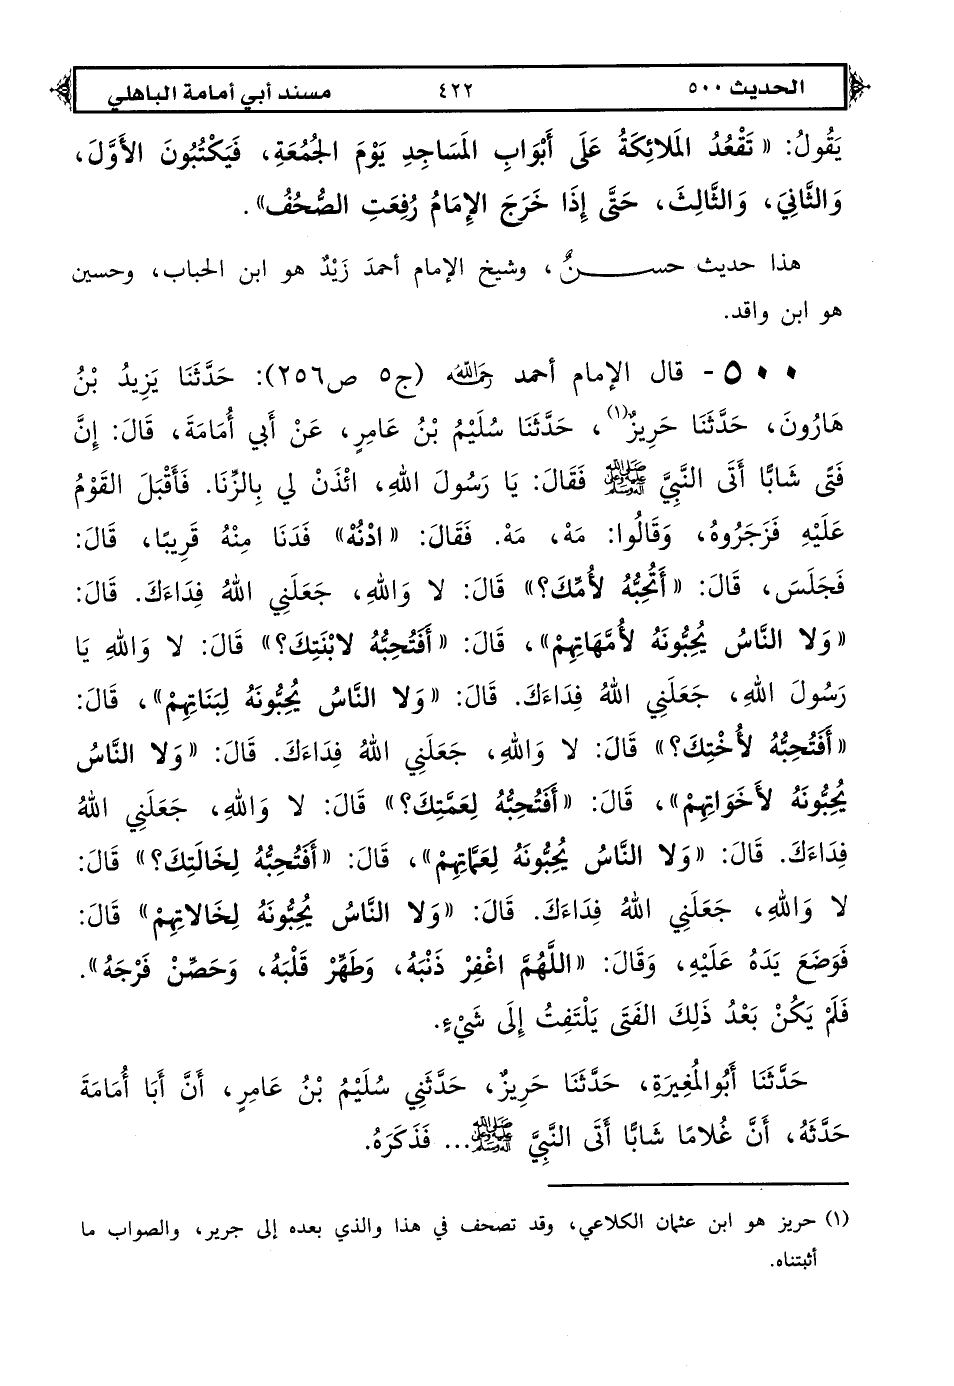 الحديث ٥٠٠ ٤٢٢ مسند أبي أمامة الباهلي
يَقُولُ: «تَقْعُدُ المَلائِكَةُ عَلَى أَبْوَابِ المَسَاجِدِ يَوْمَ الجُمُعَةِ، فَيَكْتُبُونَ الأَوَّلَ،
وَالثَّانِيَ، وَالثَّالِثَ، حَتَّى إِذَا خَرَجَ الإِمَامُ رُفِعَتِ الصُّحُفُ».
هذا حديث حســــنٌ، وشيخ الإمام أحمدَ زَيْدٌ هو ابن الحباب، وحسين
هو ابن واقد.
٥٠٠- قال الإمام أحمد رحمه الله (ج٥ ص٢٥٦): حَدَّثَنَا يَزِيدُ بْنُ
هَارُونَ، حَدَّثَنَا حَرِيزٌ(١)، حَدَّثَنَا سُلَيْمُ بْنُ عَامِرٍ، عَنْ أَبي أُمَامَةَ، قَالَ: إِنَّ
فَتًى شَابًّا أَتَى النَّبِيَّ ﷺ فَقَالَ: يَا رَسُولَ اللهِ، ائْذَنْ لي بِالزِّنَا. فَأَقْبَلَ القَوْمُ
عَلَيْهِ فَزَجَرُوهُ، وَقَالُوا: مَهْ، مَهْ. فَقَالَ: «ادْنُهْ» فَدَنَا مِنْهُ قَرِيبًا، قَالَ:
فَجَلَسَ، قَالَ: «أَتُحِبُّهُ لأُمِّكَ؟» قَالَ: لا وَاللهِ، جَعَلَنِي اللهُ فِدَاءَكَ. قَالَ:
«وَلا النَّاسُ يُحِبُّونَهُ لأُمَّهَاتِهِمْ»، قَالَ: «أَفَتُحِبُّهُ لابْنَتِكَ؟» قَالَ: لا وَاللهِ يَا
رَسُولَ اللهِ، جَعَلَنِي اللهُ فِدَاءَكَ. قَالَ: «وَلا النَّاسُ يُحِبُّونَهُ لِبَنَاتِهِمْ»، قَالَ:
«أَفَتُحِبُّهُ لأُخْتِكَ؟» قَالَ: لا وَاللهِ، جَعَلَنِي اللهُ فِدَاءَكَ. قَالَ: «وَلا النَّاسُ
يُحِبُّونَهُ لأَخَوَاتِهِمْ»، قَالَ: «أَفَتُحِبُّهُ لِعَمَّتِكَ؟» قَالَ: لا وَاللهِ، جَعَلَنِي اللهُ
فِدَاءَكَ. قَالَ: «وَلا النَّاسُ يُحِبُّونَهُ لِعَمَّاتِهِمْ»، قَالَ: «أَفَتُحِبُّهُ لِخَالَتِكَ؟» قَالَ:
لا وَاللهِ، جَعَلَنِي اللهُ فِدَاءَكَ. قَالَ: «وَلا النَّاسُ يُحِبُّونَهُ لِخَالاتِهِمْ» قَالَ:
فَوَضَعَ يَدَهُ عَلَيْهِ، وَقَالَ: «اللَّهُمَّ اغْفِرْ ذَنْبَهُ، وَطَهِّرْ قَلْبَهُ، وَحَصِّنْ فَرْجَهُ».
فَلَمْ يَكُنْ بَعْدُ ذَلِكَ الفَتَى يَلْتَفِتُ إِلَى شَيْءٍ.
حَدَّثَنَا أَبُوالمُغِيرَةِ، حَدَّثَنَا حَرِيزٌ، حَدَّثَنِي سُلَيْمُ بْنُ عَامِرٍ، أَنَّ أَبَا أُمَامَةَ
حَدَّثَهُ، أَنَّ غُلامًا شَابًّا أَتَى النَّبِيَّ ﷺ... فَذَكَرَهُ.
(١) حريز هو ابن عثمان الكلاعي، وقد تصحف في هذا والذي بعده إلى جرير، والصواب ما
أثبتناه.